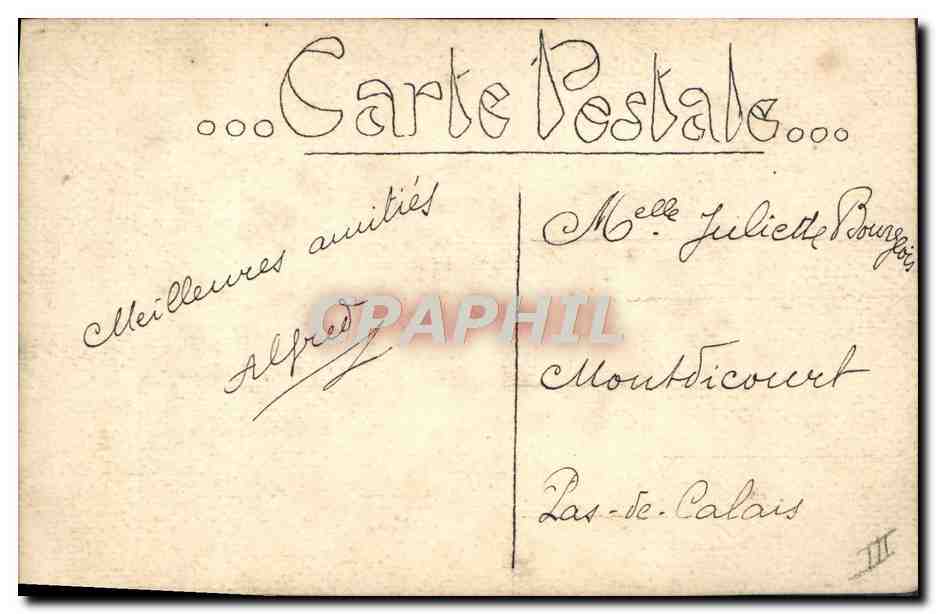 ...Carte Postale...
Meilleures amitiés
Alfred
Melle. Juliette Bourgeois
Montdicourt
Pas-de-Calais
CPAPHIL
III